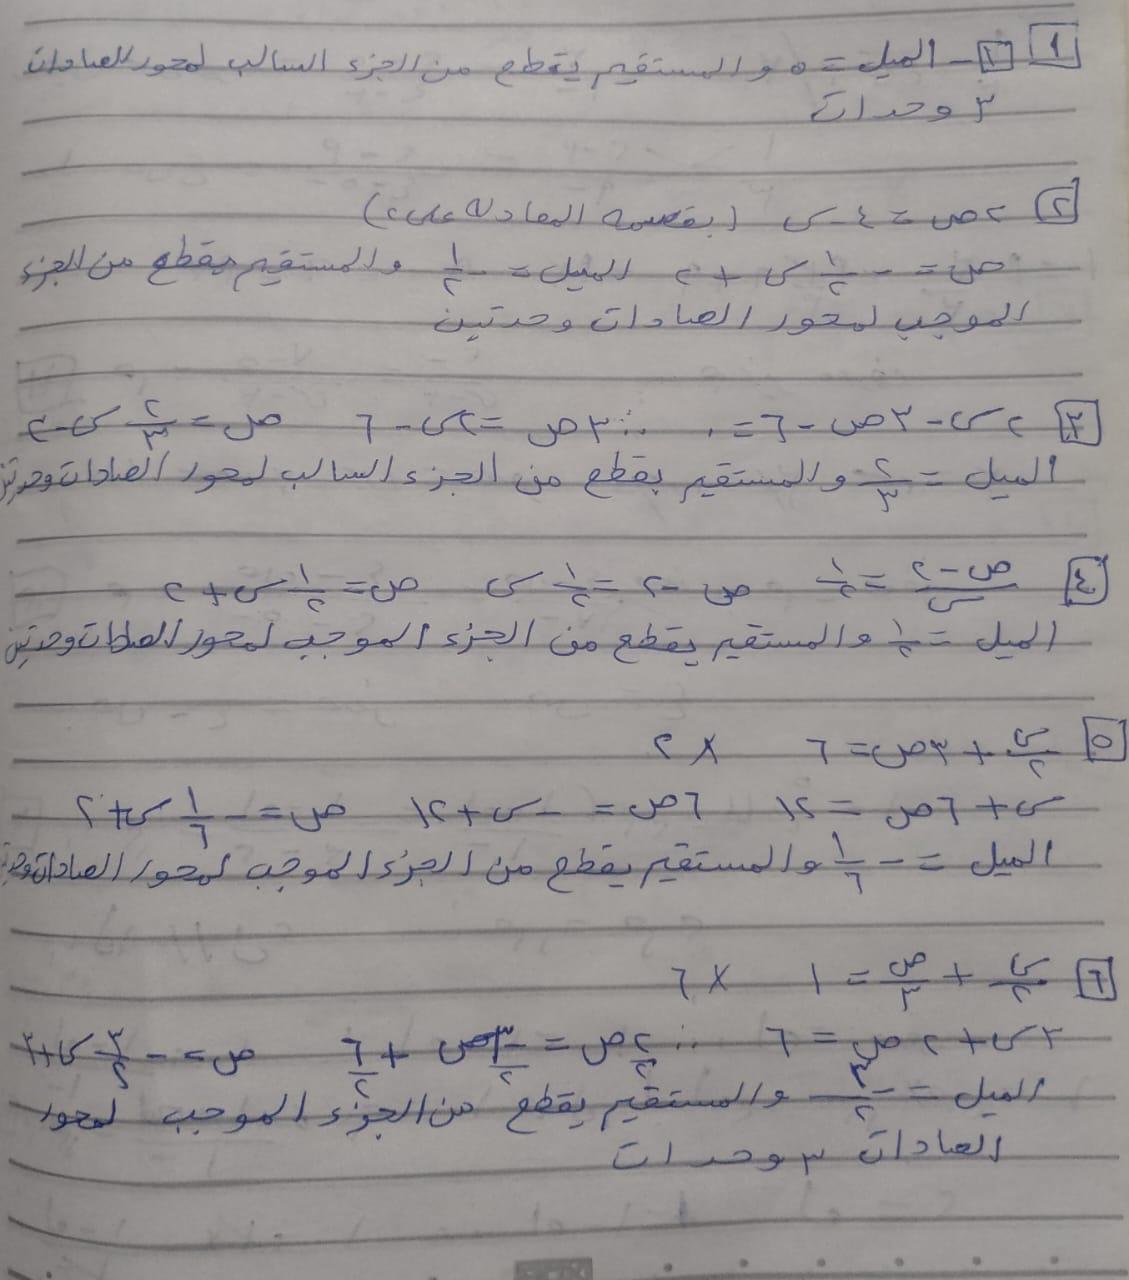 ١ ١- الميل = ٥ والمستقيم يقطع من الجزء السالب لمحور الصادات
٣ وحدات
٢ ٢ص = ٤ - س (بقسمة المعادلة على ٢)
ص = -١/٢ س + ٢ الميل = -١/٢ والمستقيم يقطع من الجزء
الموجب لمحور الصادات وحدتين
٣ ٢س - ٣ص - ٦ = ٠ ∴ ٣ص = ٢س - ٦ ص = ٢/٣ س - ٢
الميل = ٢/٣ والمستقيم يقطع من الجزء السالب لمحور الصادات وحدتين
٤ ص-٢/س = ١/٢ ص - ٢ = ١/٢ س ص = ١/٢ س + ٢
الميل = ١/٢ والمستقيم يقطع من الجزء الموجب لمحور الصادات وحدتين
٥ س/٢ + ٣ص = ٦ × ٢
س + ٦ص = ١٢ ٦ص = -س + ١٢ ص = -١/٦ س + ٢
الميل = -١/٦ والمستقيم يقطع من الجزء الموجب لمحور الصادات
٦ س/٢ + ص/٣ = ١ × ٦
٣س + ٢ص = ٦ ∴ ٢/٢ ص = -٣/٢ ص + ٦/٢ ص = -٣/٢ س + ٣
الميل = -٣/٢ والمستقيم يقطع من الجزء الموجب لمحور
الصادات ٣ وحدات